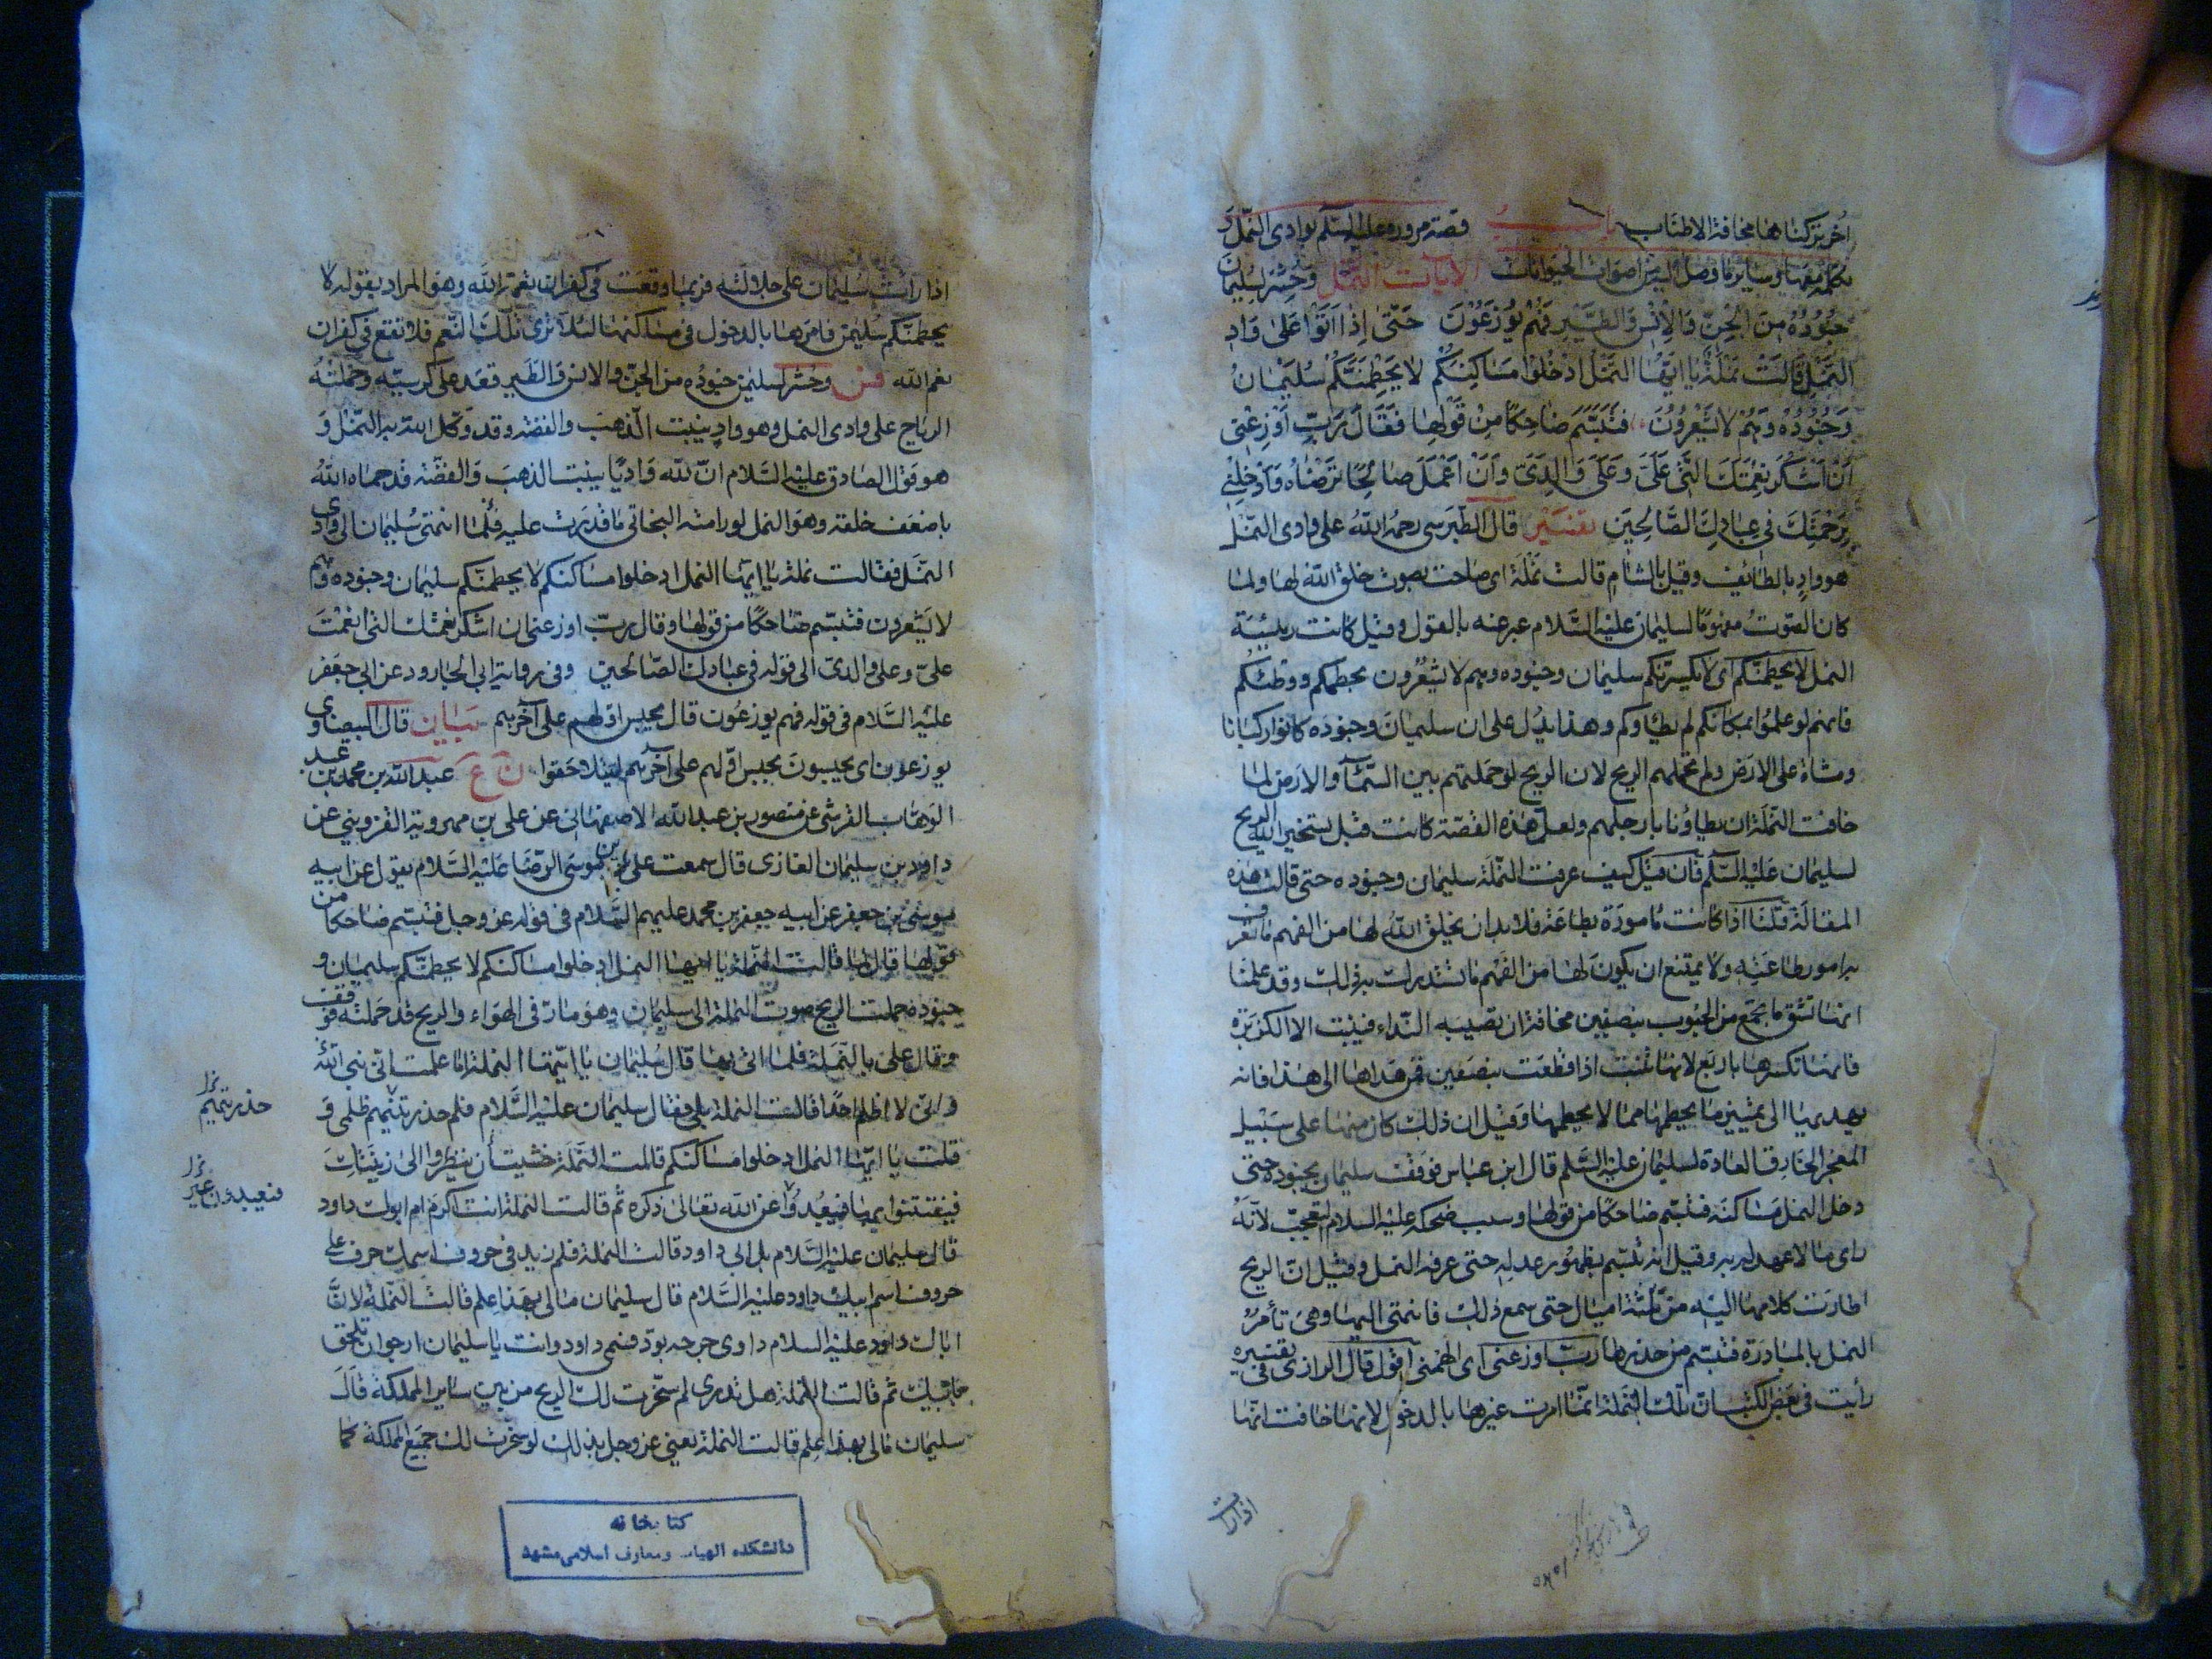 اخر تركناها مخافة الاطناب باب قصة مروره عليه السلم بوادى النمل و
تكلمه معها وساير ما وصل اليه من اصوات الحيوانات الآيات النمل وحشر لسليمان
جنوده من الجن والانس والطير فهم يوزعون حتى اذا اتوا على واد
النمل قالت نملة يا ايها النمل ادخلوا مساكنكم لا يحطمنكم سليمان
وجنوده وهم لا يشعرون فتبسم ضاحكا من قولها فقال رب اوزعنى
ان اشكر نعمتك التى على وعلى والدى وان اعمل صالحا ترضاه وادخلنى
برحمتك فى عبادك الصالحين تفسير قال الطبرسى رحمه الله على وادى النمل
هو واد بالطائف وقيل بالشام قالت نملة اى صاحت بصوت خلق الله لها ولما
كان الصوت مفهوما لسليمان عليه السلام عبر عنه بالقول وقيل كانت رئيسة
النمل لا يحطمنكم اى لا يكسرنكم سليمان وجنوده وهم لا يشعرون بحطمكم ووطئكم
فانهم لو علموا بمكانكم لم يطاوكم وهذا يدل على ان سليمان وجنوده كانوا ركبانا
ومشاة على الارض ولم تحملهم الريح لان الريح لو حملتهم بين السماء والارض لما
خافت النملة ان يطاونا بارجلهم ولعل هذه القصة كانت قبل تسخير الله الريح
لسليمان عليه السلم فان قيل كيف عرفت النملة سليمان وجنوده حتى قالت هذه
المقالة قلنا اذا كانت مامورة بطاعته فلا بد ان يخلق الله لها من الفهم ما تعرف
به امور طاعته ولا يمتنع ان يكون لها من الفهم ما تستدرك به ذلك وقد علمنا
انها تشق ما تجمع من الحبوب بنصفين مخافة ان تصيبه النداء فينبت الا الكزبرة
فانها تكسرها باربع لانها تنبت اذا قطعت بنصفين فمن هداها الى هذا فانه
يهديها الى تمييز ما يحطمها مما لا يحطمها وقيل ان ذلك كان منها على سبيل
المعجز الخارق للعادة لسليمان عليه السلم قال ابن عباس فوقف سليمان بجنوده حتى
دخل النمل مساكنه فتبسم ضاحكا من قولها وسبب ضحكه عليه السلام التعجب لانه
راى ما لا عهد له به وقيل انه تبسم بظهور عدله حتى عرفه النمل وقيل ان الريح
اطارت كلامها اليه من ثلثة اميال حتى سمع ذلك فانتهى اليها وهى تأمر
النمل بالمبادرة فتبسم من حذرها رب اوزعنى اى الهمنى اقول قال الرازى فى تفسيره
رأيت فى بعض الكتب ان تلك النملة انما امرت غيرها بالدخول لانها خافت انها
اذا رات
اذا رات سليمان على جلالته فربما وقعت فى كفران نعمة الله وهو المراد بقوله لا
يحطمنكم سليمن فامرها بالدخول فى مساكنها لئلا ترى تلك النعم فلا تقع فى كفران
نعم الله فس وحشر لسليمن جنوده من الجن والانس والطير قعد على كرسيه وحملته
الرياح على وادى النمل وهو واد ينبت الذهب والفضة وقد وكل الله به النمل و
هو قول الصادق عليه السلام ان لله واديا ينبت الذهب والفضة قد حماه الله
باضعف خلقه وهو النمل لو رامته البخاتى ما قدرت عليه فلما انتهى سليمان الى وادى
النمل فقالت نملة يا ايها النمل ادخلوا مساكنكم لا يحطمنكم سليمان وجنوده وهم
لا يشعرون فتبسم ضاحكا من قولها وقال رب اوزعنى ان اشكر نعمتك التى انعمت
على وعلى والدى الى قوله فى عبادك الصالحين وفى رواية ابى الجارود عن ابى جعفر
عليه السلام فى قوله فهم يوزعون قال يحبس اولهم على آخرهم بيان قال البيضاوى
يوزعون اى يحبسون بحبس اولهم على آخرهم ليتلاحقوا ن ع عبد الله بن محمد بن عبد
الوهاب القرشى عن منصور بن عبد الله الاصفهانى عن على بن مهرويه القزوينى عن
داود بن سليمان الغازى قال سمعت على بن موسى الرضا عليه السلام يقول عن ابيه
موسى بن جعفر عن ابيه جعفر بن محمد عليهم السلام فى قوله عز وجل فتبسم ضاحكا من
قولها قال لما قالت النملة يا ايها النمل ادخلوا مساكنكم لا يحطمنكم سليمان و
جنوده حملت الريح صوت النملة الى سليمان وهو مار فى الهواء والريح قد حملته فوقف
وقال على بالنملة فلما اتى بها قال سليمان يا ايتها النملة اما علمت انى نبى الله
وانى لا اظلم احدا قالت النملة بلى فقال سليمان عليه السلام فلم حذرتنيهم ظلمى و
حذرتهم
قلت يا ايها النمل ادخلوا مساكنكم قالت النملة خشيت أن ينظروا الى زينتك
فيفتتنوا بها فيبعدوا عن الله تعالى ذكره ثم قالت النملة انت اكرم ام ابوك داود
فيعبدون غير
قال سليمان عليه السلام بل ابى داود قالت النملة فلم زيد فى حروف اسمك حرف على
حروف اسم ابيك داود عليه السلام قال سليمان ما لى بهذا علم قالت النملة لان
اباك داود عليه السلام داوى جرحه بود فسمى داود وانت يا سليمان ارجو ان تلحق
بابيك ثم قالت النملة هل تدرى لم سخرت لك الريح من بين ساير المملكة قال
سليمان ما لى بهذا علم قالت النملة يعنى عز وجل بذلك لو سخرت لك جميع المملكة كما
كتابخانه
دانشكده الهيات ومعارف اسلامى مشهد